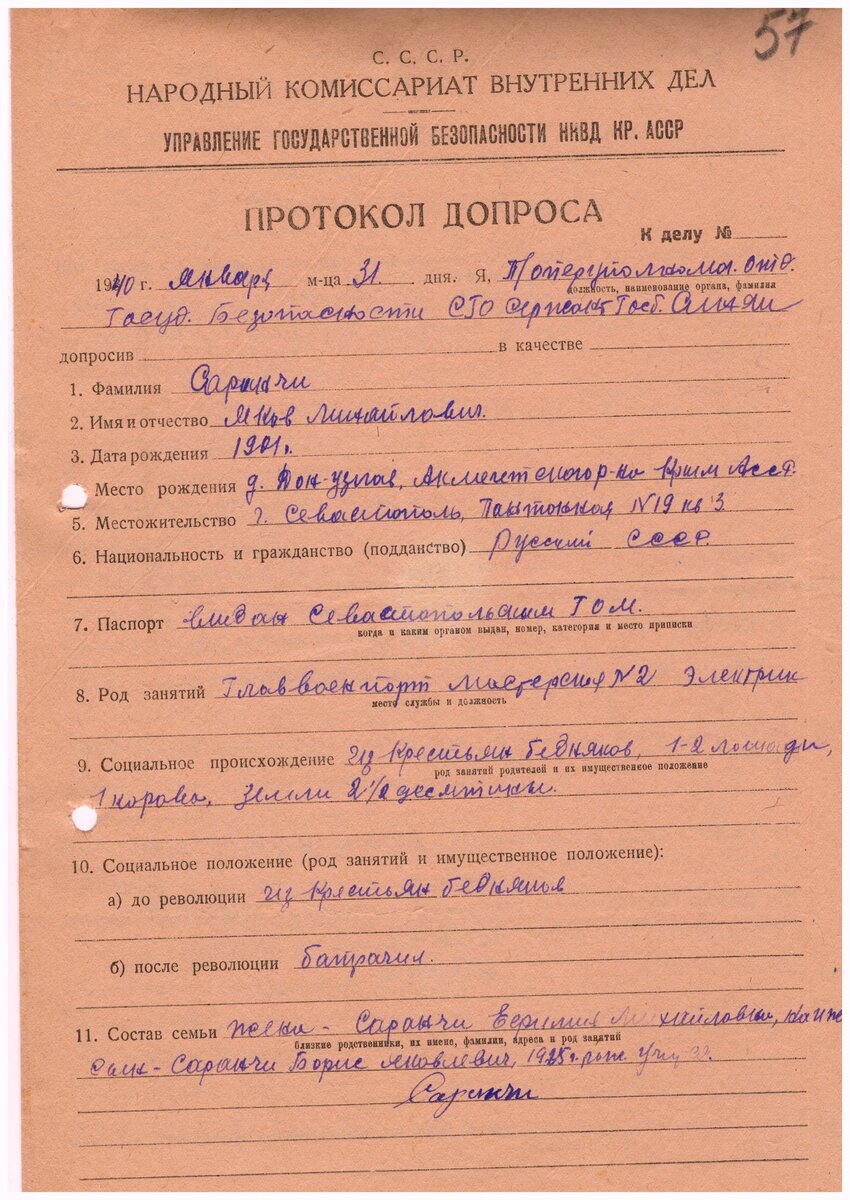 57
С. С. С. Р.
НАРОДНЫЙ КОМИССАРИАТ ВНУТРЕННИХ ДЕЛ
УПРАВЛЕНИЕ ГОСУДАРСТВЕННОЙ БЕЗОПАСНОСТИ НКВД КР. АССР
ПРОТОКОЛ ДОПРОСА
К делу №
1940 г. Января м-ца 31 дня. Я,
должность, наименование органа, фамилия
Госуд. Безопасности СГО Сержант Госб.
допросив в качестве
1. Фамилия Саранчи
2. Имя и отчество Яков Михайлович.
3. Дата рождения 1901г.
Место рождения д. Дон-Узлав, р-на Крым АССР.
5. Местожительство г. Севастополь, N19 кв 3
6. Национальность и гражданство (подданство) Русский СССР.
7. Паспорт выдан Севастопольским ГОМ.
когда и каким органом выдан, номер, категория и место приписки
8. Род занятий Главвоенпорт Мастерская N2 Электрик
место службы и должность
9. Социальное происхождение из Крестьян бедняков, 1-2 лошади,
род занятий родителей и их имущественное положение
1 корова, Земли 2½ десятины.
10. Социальное положение (род занятий и имущественное положение):
а) до революции из Крестьян бедняков
б) после революции батрачил.
11. Состав семьи Жена - Саранчи Михайловна,
близкие родственники, их имена, фамилии, адреса и род занятий
Сын - Саранчи Борис Яковлевич, 1925г. рож.
Саранчи